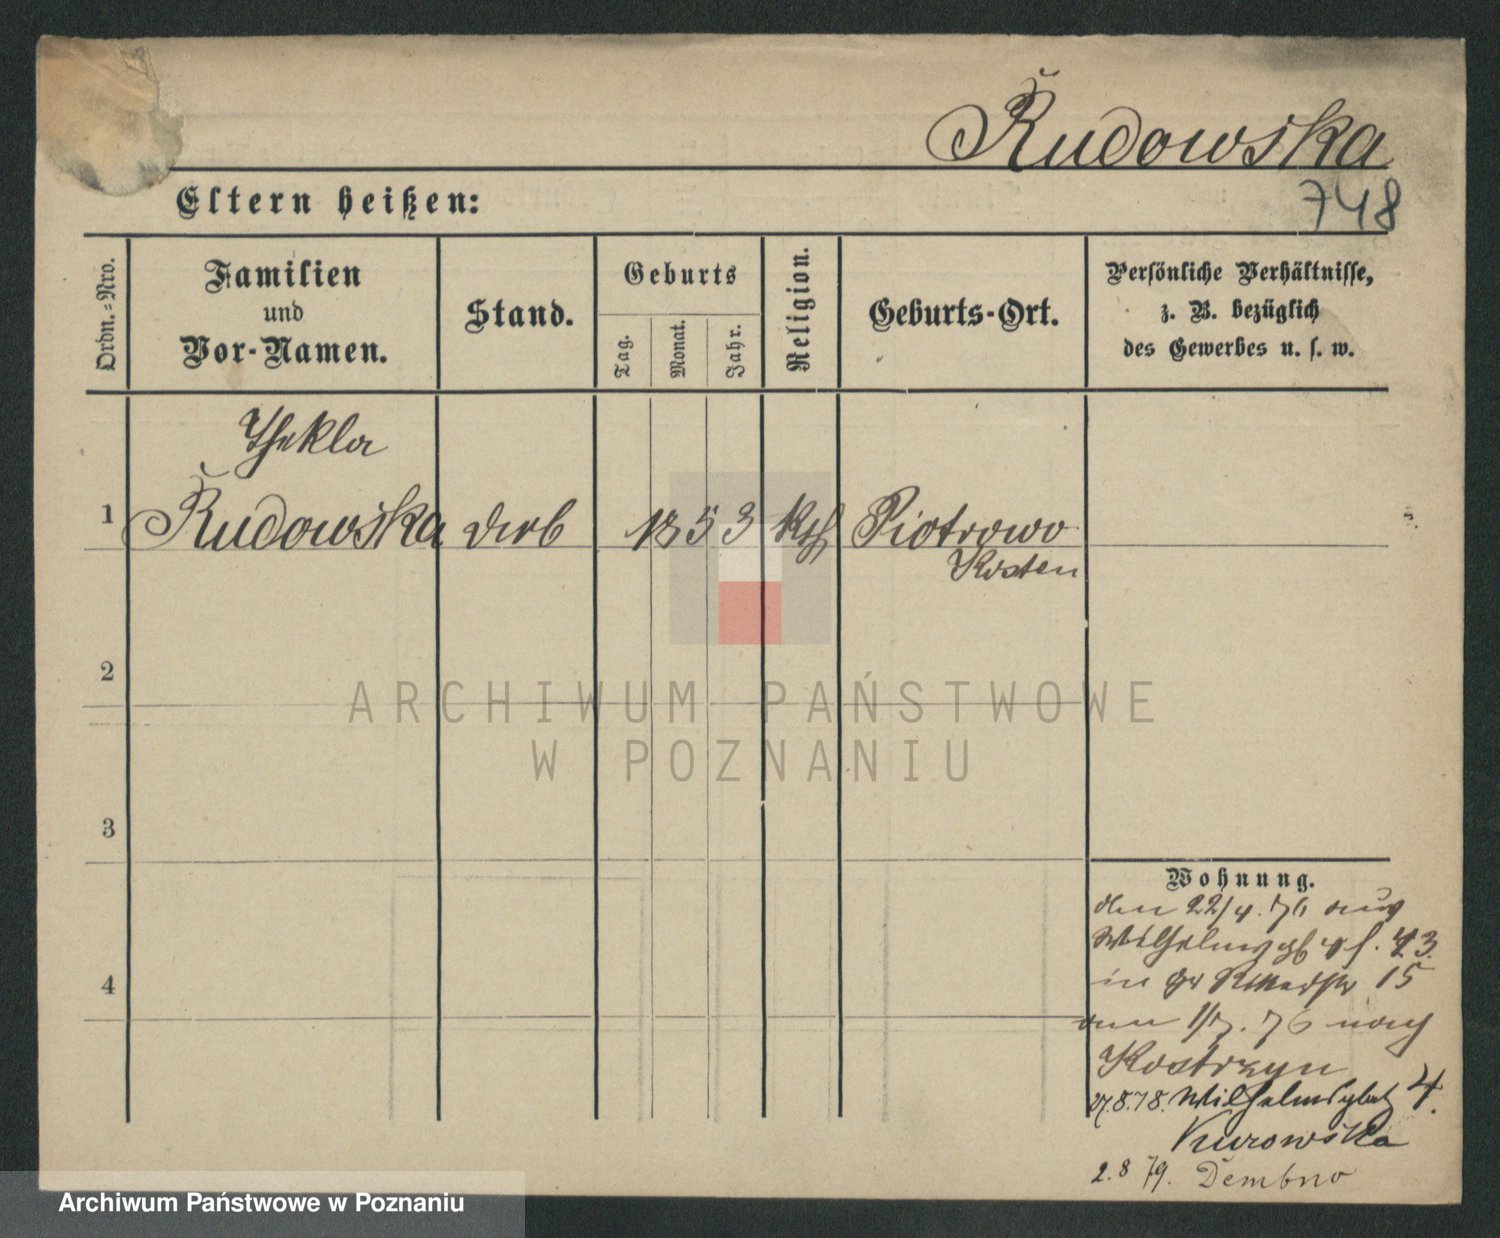 Rudowska
748
Eltern heißen:
Ordn.-Nro.
Familien
und
Vor-Namen.
Stand.
Geburts
Tag.
Monat.
Jahr.
Religion.
Geburts-Ort.
Persönliche Verhältnisse,
z. B. bezüglich
des Gewerbes u. s. w.
Thekla
1 Rudowska 1853 Kth Piotrowo
Kosten
2
3
4
ARCHIWUM PAŃSTWOWE
W POZNANIU
Wohnung.
den 22/4. 76 aus
23.
in Gr Ritterstr 15
am 1/7. 76 nach
Kostrzyn
27.8.78. Wilhelmsplatz 4.
Kurowska
2. 8 79. Dembno
Archiwum Państwowe w Poznaniu